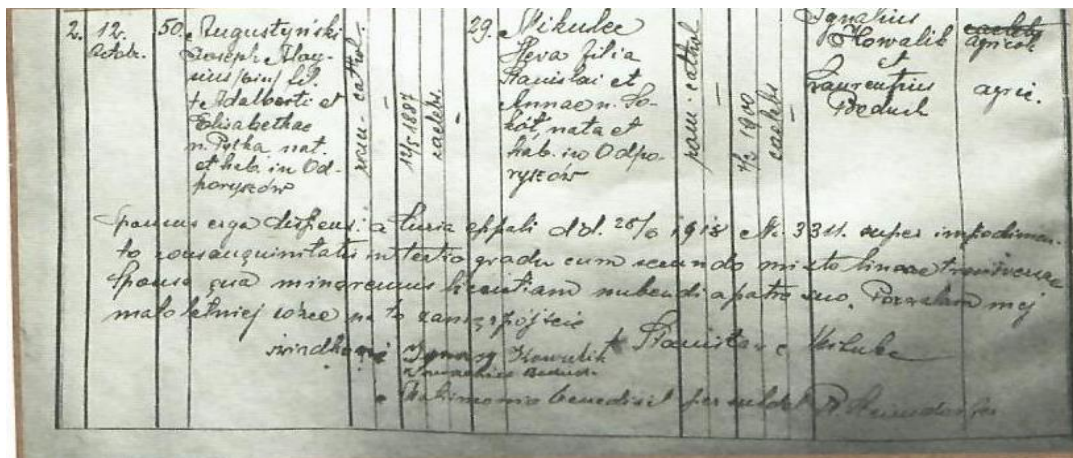 2. 12. Octobr. 50.
Augustyński
Joseph Aloy-
sius /bin/ fil.
+ Adalberti et
Elisabethae
n. Pytka nat.
et hab. in Od-
poryszów
rom - cathol -
12/5 1887
caelebs.
29. Mikulec
Heva filia
Stanislai et
Annae n. So-
kół, nata et
hab. in Odpo-
ryszów
rom - cathol
1900
caelebs
Ignatius
Kowalik agricol
et
Laurentius agric.
Beduch
Sponsus erga dispens. a Curia eppali dd. 1918 N. 3311. super impedimen-
to consanquinitatis in tertio gradu cum secundo mixto lineae transversae
Sponsa qua minorennis licentiam nubendi a patre suo. Pozwalam mej
małoletniej córce na to zamążpójście
świadkowie Ignacy Kowalik + Stanisław Mikulec
Beduch
Matrimonio benedixit